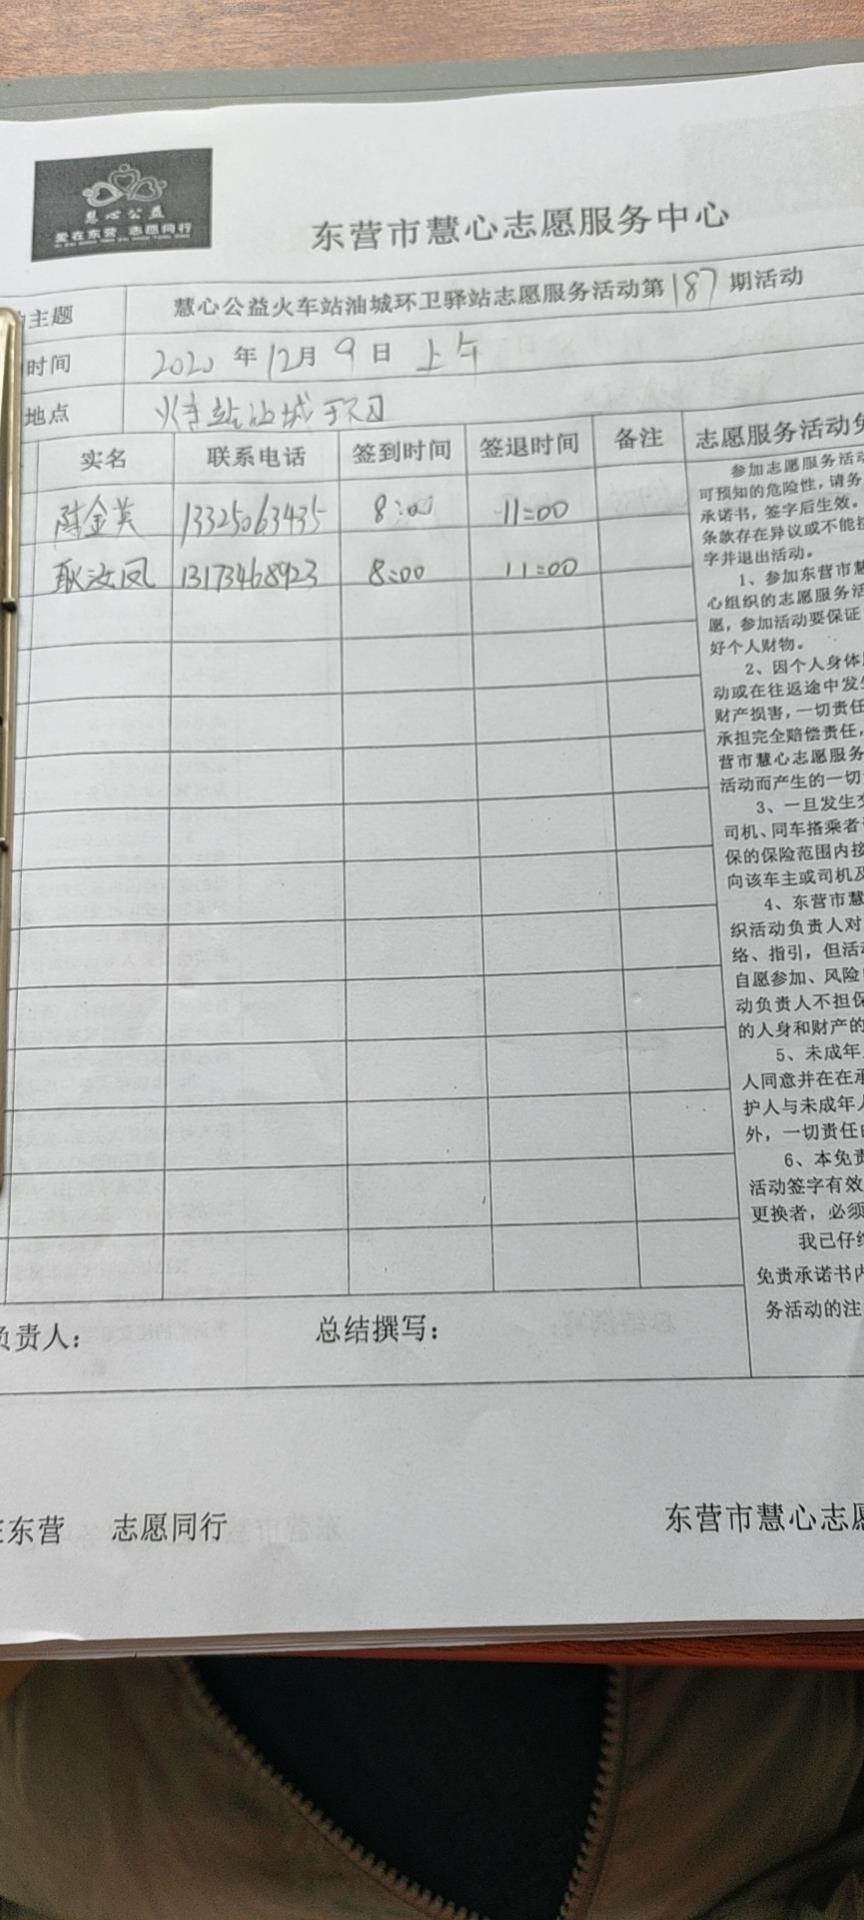 慧心公益
爱在东营 志愿同行
东营市慧心志愿服务中心
主题 慧心公益火车站油城环卫驿站志愿服务活动第187期活动
时间 2020年12月9日 上午
地点 火车站油城环卫
实名 联系电话 签到时间 签退时间 备注
陈金英 13325063435 8:00 11:00
耿汝凤 13173468923 8:00 11:00
志愿服务活动免
参加志愿服务活动
可预知的危险性,请务
承诺书,签字后生效。
条款存在异议或不能接
字并退出活动。
1、参加东营市慧
心组织的志愿服务活
愿,参加活动要保证
好个人财物。
2、因个人身体
动或在往返途中发生
财产损害,一切责任
承担完全赔偿责任,
营市慧心志愿服务
活动而产生的一切
3、一旦发生交
司机、同车搭乘者
保的保险范围内接
向该车主或司机及
4、东营市慧
织活动负责人对
络、指引,但活动
自愿参加、风险
动负责人不担保
的人身和财产的
5、未成年
人同意并在在承
护人与未成年人
外,一切责任由
6、本免责
活动签字有效
更换者,必须
我已仔细
免责承诺书内
务活动的注
负责人: 总结撰写:
在东营 志愿同行 东营市慧心志愿